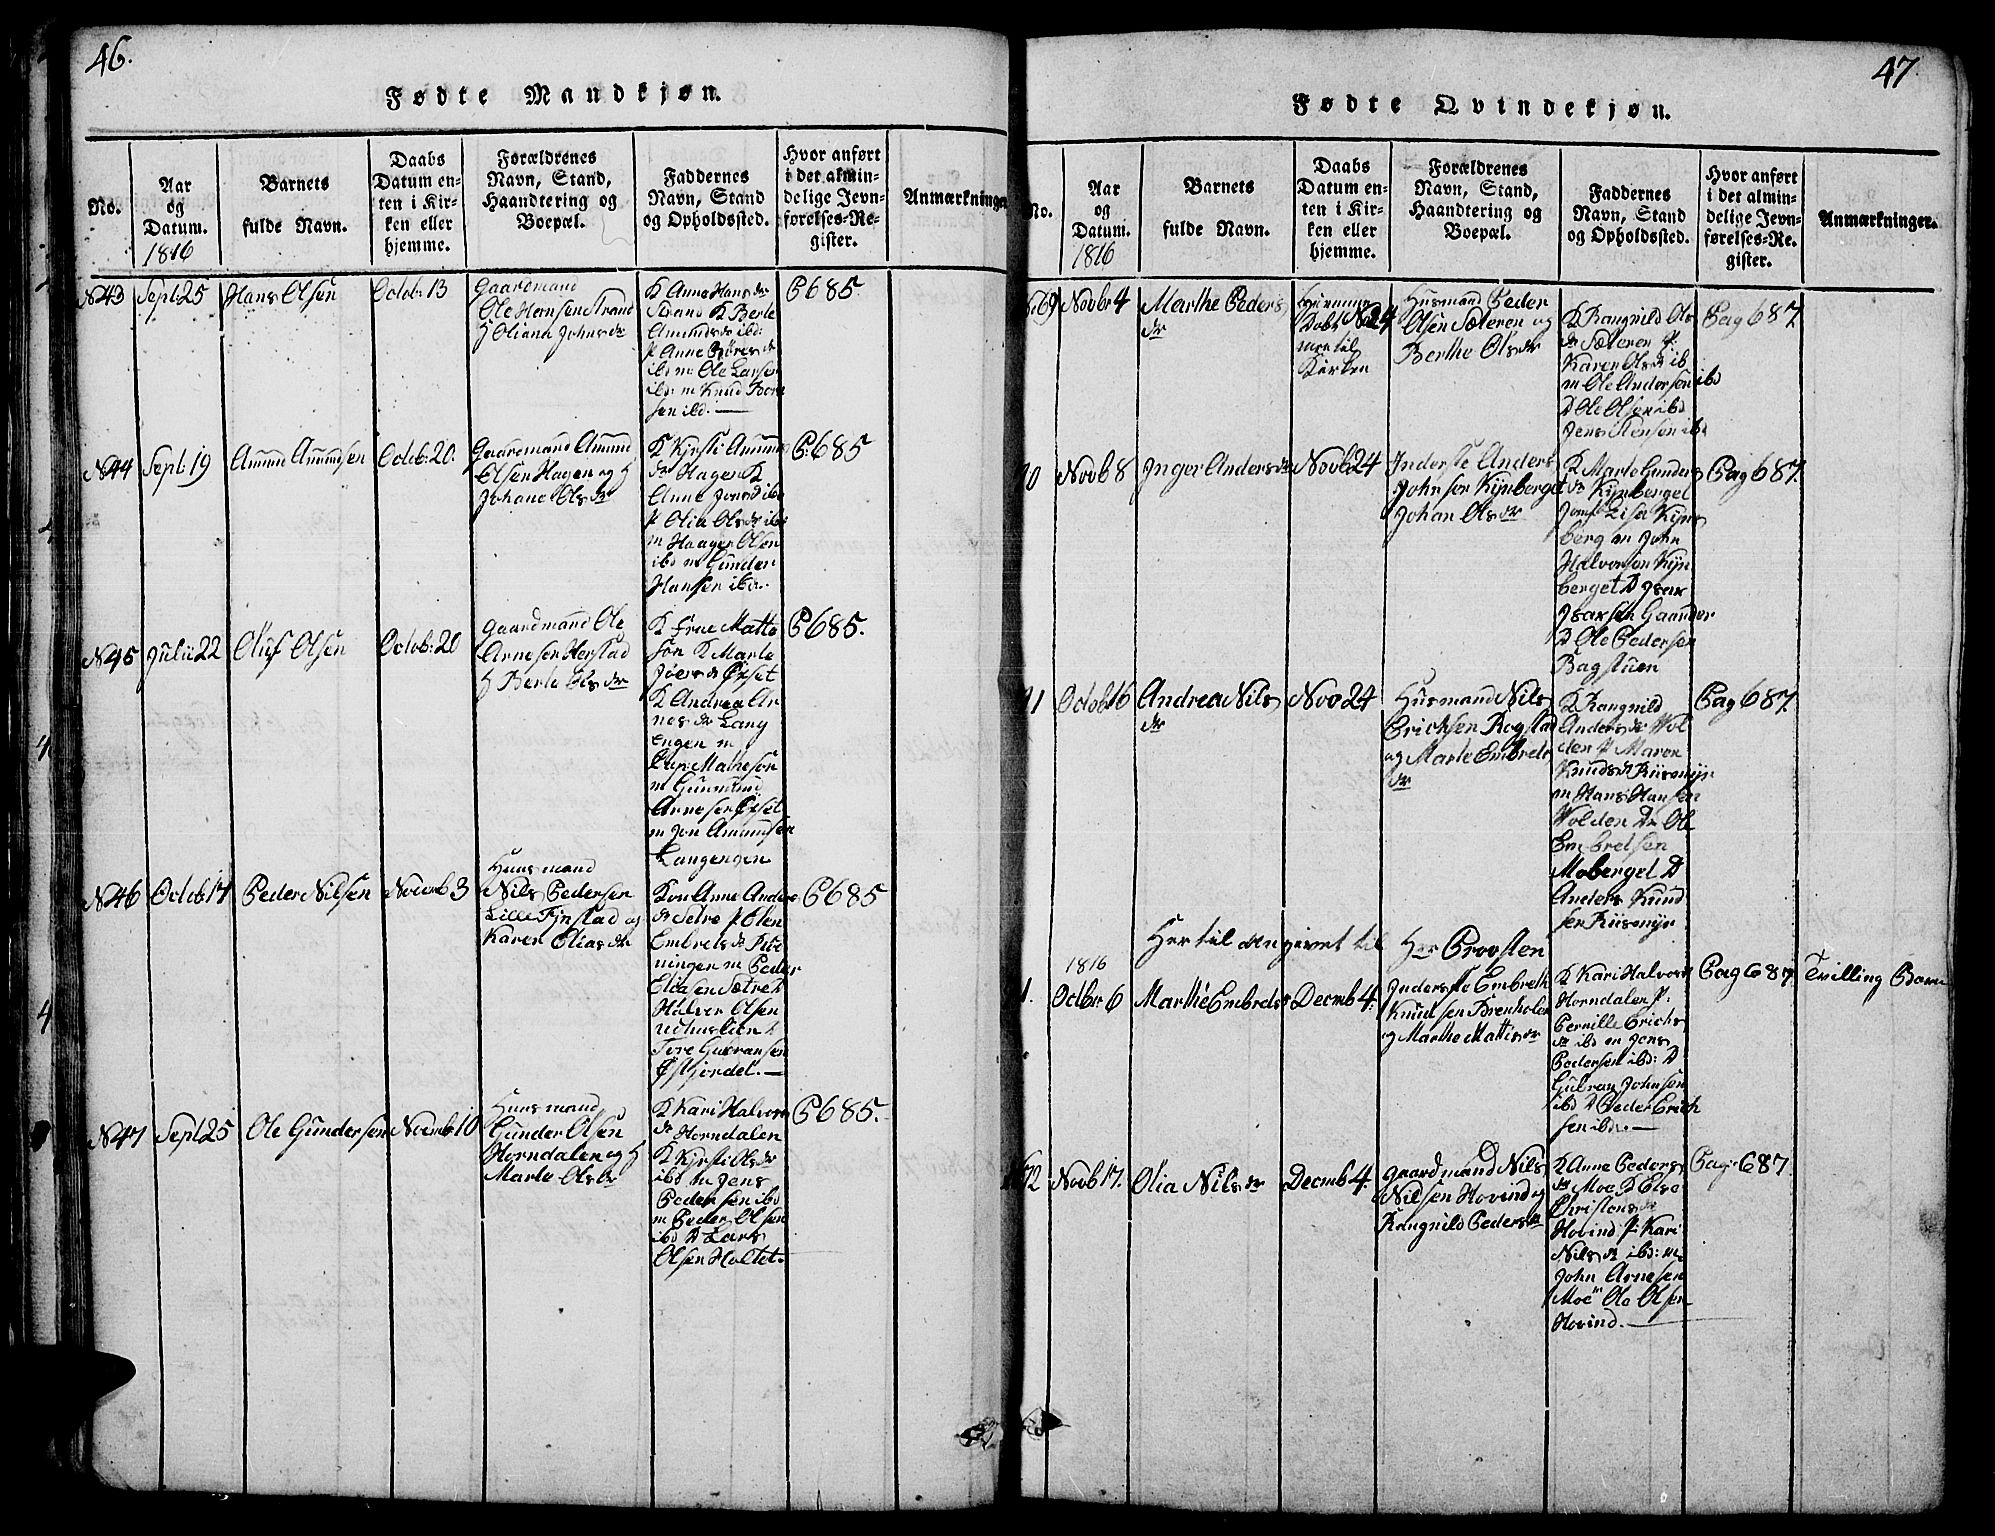 46.
Fødte Mandkjøn.
No.
Aar
og
Datum.
1816
Barnets
fulde Navn.
Daabs
Datum en-
ten i Kir-
ken eller
hjemme.
Forældrenes
Navn, Stand,
Haandtering og
Boepæl.
Faddernes
Navn, Stand
og Opholdssted.
Hvor anført
i det almin-
delige Jevn-
førelses-Re-
gister.
Anmærkninger
N43 Sept: 25 Hans Olsen Octob: 13
Gaardmand
Ole Hansen Strand
Oliana Johnsdr
K Anne Hansdr
Strand K Berte
Amundsdr ibd:
P Anne
ibd m: Ole Larsen
ibd: m Knud
sen ibd.
P685.
N44 Sept: 19 Amund Amundsen Octob: 20.
Gaardmand Amund
Olsen Hagen og
Johane Olsdr
K Kjrsti Amunds
dr Hagen K
Anne Jonsd ibd
P Olia Olsdr ibd
m Haagen Olsen
ibd m Gunder
Hansen ibd.
P:685
N45 Julii 22 Oluf Olsen Octob: 20
Gaardmand Ole
Arnesen Herstad
Berte Olsdr
K Frue Matte
son K Marte
K Andrea Ar
nesdr Lang
engen m
m Gunmund
Arnesen
m Jon Amundsen
Langengen
P685.
N46 Octob 14 Peder Nilsen Novemb 3
Huusmand
Nils Pedersen
Lille Fjnstad og
Karen Eliasdr
Kon Anne Anders
dr Setre P Elen
Embretsdr
ningen m Peder
Eliasen Sætre
Halvor Olsen
Tore Gulransen
P685
N47 Sept 25 Ole Gundersen Novemb 10
Huusmand
Gunder Olsen
Horndalen og
Marte Olsdr
K Kari Halvors
dr Horndalen
K Kjrsti Olsdr
ibd m Jens
Pedersen ibd
m Peder Olsen
ibd D Lars
Olsen Holtet.
P685.
47
Fødte Qvindekjøn.
No.
Aar
og
Datum.
1816
Barnets
fulde Navn.
Daabs
Datum en-
ten i Kir-
ken eller
hjemme.
Forældrenes
Navn, Stand,
Haandtering og
Boepæl.
Faddernes
Navn, Stand
og Opholdssted.
Hvor anført
i det almin-
delige Jevn-
førelses-Re-
gister.
Anmærkninger.
69 Novbr 4 Marthe Peders
dr
Hjemme
Døbt Nov 24
til
Kirken
Husmand Peder
Olsen Sæteren og
Berthe Olsdr
K Rangnild Ols
dr Sæteren P:
Karen Olsdr ib
m Ole Andersen ibd
D Ole Olsen ibd
Jens Stensen ibd
Pag 687.
70 Novb 8 Inger Andersdr Novb 24
Inderste Anders
Johnsen Kjnberget
Johan Olsdr
K Marte Gunders
dr Kjnberget
Jomf Lise Kjns
berg m John
Halvorsen Kjn
berget D Isak
Isaksen Gaarder
D Ole Pedersen
Bagstuen
Pag 687.
71 Octob 16 Andrea Nils
dr
Nov 24
Husmand Nils
Ericksen Rogstad
og Marte Embrets
dr
K Rangnild
Andersdr Vol
den P Maren
Knudsd Riisenjn
m Hans Hansen
Volden D Ole
Embretsen
Moberget D
Anders Knud
sen Riisenjn
Pag 687.
Her til angivet til Hr Provsten
1816
1. Octbr 6 Marthe Embretsd Decmb 4.
Inderste Embreth
Knudsen Brenholen
og Marthe Mattisdr
K Kari Halvorsd
Horndalen P:
Pernille Erichs
dr ibd m Jens
Pedersen ibd: D
Gulran Johnsen
ibd D Peder Erich
sen ibd.
Pag 687
Tvilling Barn
72 Novb 17. Olia Nilsdr Decmb 4.
Gaardmand Nils
Nilsen Hovind og
Rangnild Pedersdr
K Anne Peders
dr Moe K Else
Christensdr
Hovind P: Kari
Nilsdr ibd: m
John Arnesen
Moe m Ole Olsen
Hovind.
Pag: 687